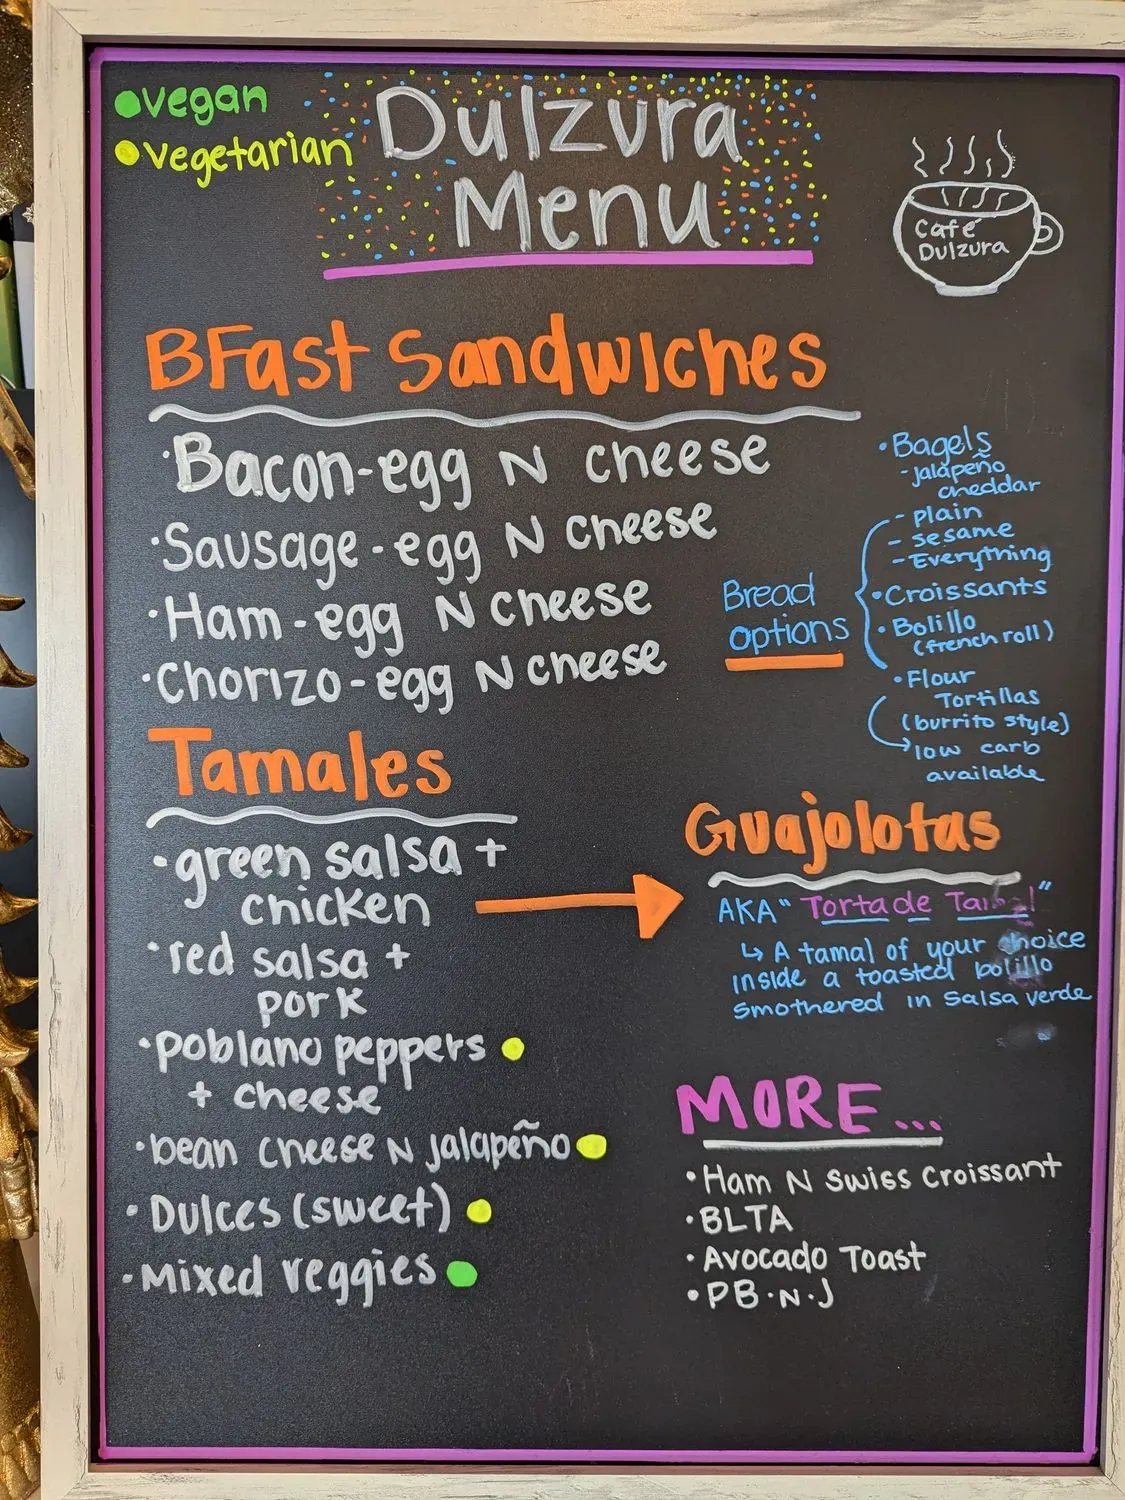 •vegan
•vegetarian
Dulzura
Menu
Café
Dulzura
BFast Sandwiches
•Bacon-egg N cheese
•Sausage-egg N cheese
•Ham-egg N cheese
•Chorizo-egg N cheese
Bread
options
•Bagels
-jalapeño
cheddar
- plain
- sesame
-Everything
•Croissants
•Bolillo
(french roll)
•Flour
Tortillas
(burrito style)
→low carb
available
Tamales
•green salsa +
chicken
•red salsa +
pork
•poblano peppers
+ cheese
•bean cheese N jalapeño
•Dulces (sweet)
•Mixed veggies
Guajolotas
AKA "Torta de Tamal"
↳ A tamal of your choice
inside a toasted bolillo
smothered in salsa verde
MORE...
•Ham N Swiss Croissant
•BLTA
•Avocado Toast
•PB·N·J